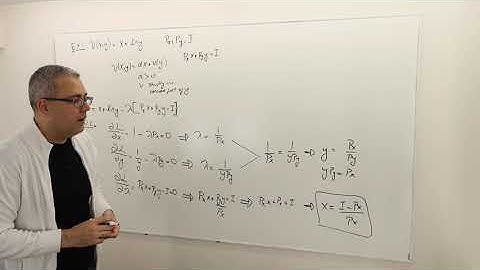 U(x,y) = x + lny    Px, Py, I
U(x,y) = αx + V(y)    Px x + Py y = I
α > 0
= x + lny - λ[Px x + Py y - I]
∂L/∂x = 1 - λPx = 0 ⇒ λ = 1/Px
∂L/∂y = 1/y - λPy = 0 ⇒ λ = 1/(yPy)
1/Px = 1/(yPy) ⇒ y = Px/Py
yPy = Px
Px x + Py y - I = 0 ⇒ Px x + Py y = I ⇒ Px x + Px = I ⇒ x = (I - Px)/Px
Px